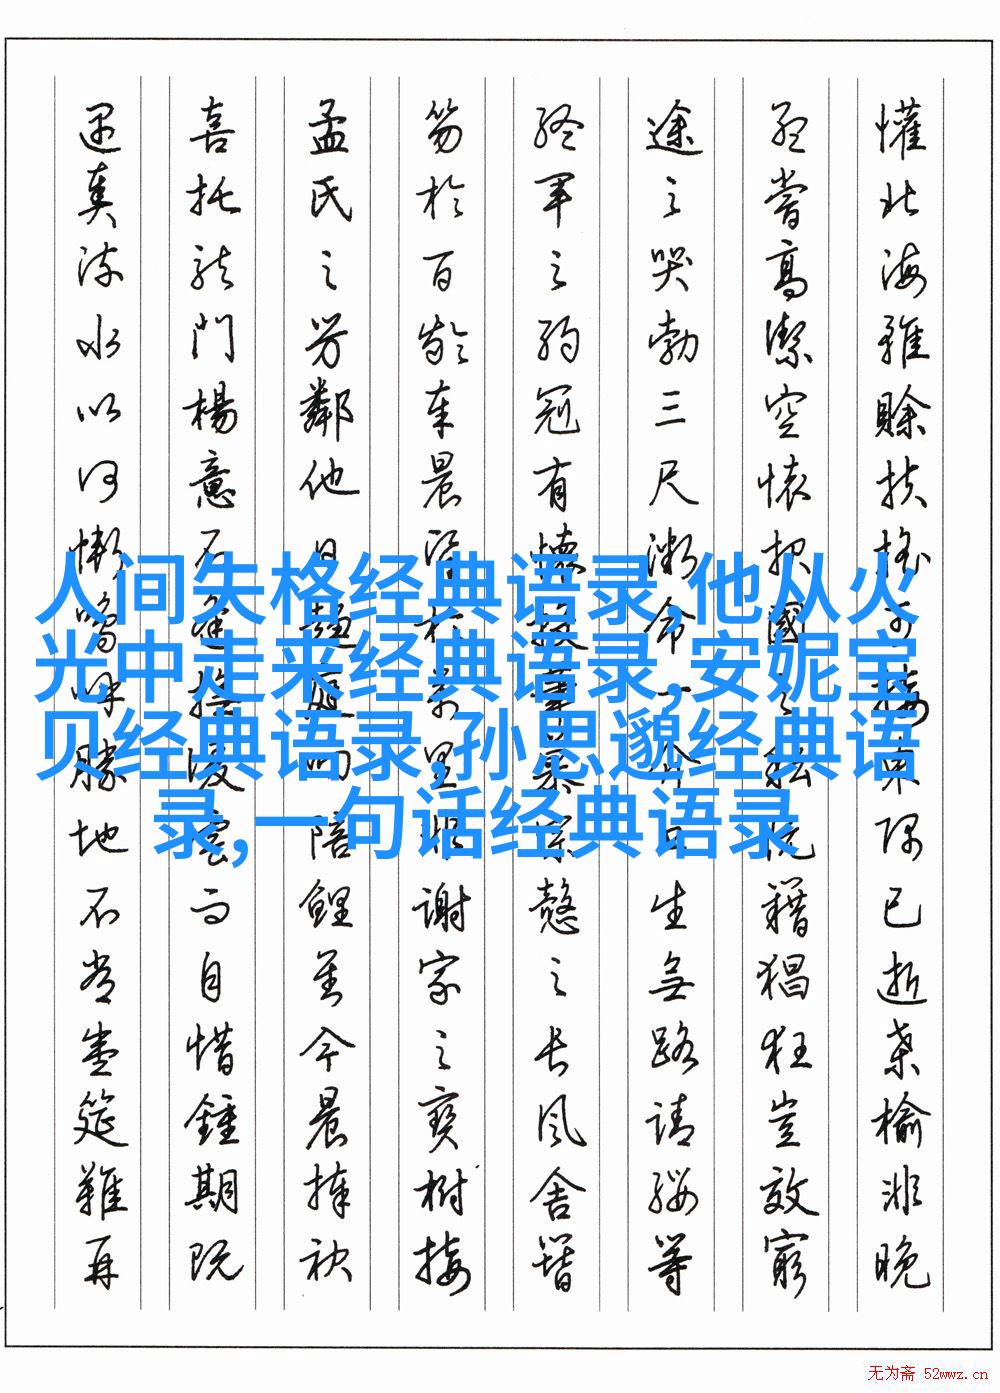 懽北海雖賒扶搖可接東隅已逝桑榆非晚
孟嘗高潔空懷報國之私阮籍猖狂豈效窮
途之哭勃三尺微命一介生無路請纓等
終軍之弱冠有懷投筆慕宗慤之長風舍簪
笏於百齡奉晨昏於萬里非謝家之寶樹接
孟氏之芳鄰他日趨庭叨陪鯉對今晨捧袂
喜托龍門楊意不逢撫凌雲而自惜鍾期既
遇奏流水以何慚嗚呼勝地不常盛筵難再
人间失格经典语录,他从火
光中走来经典语录,安妮宝
贝经典语录,孙思邈经典语
录,一句话经典语录
无为斋 52wwz.cn